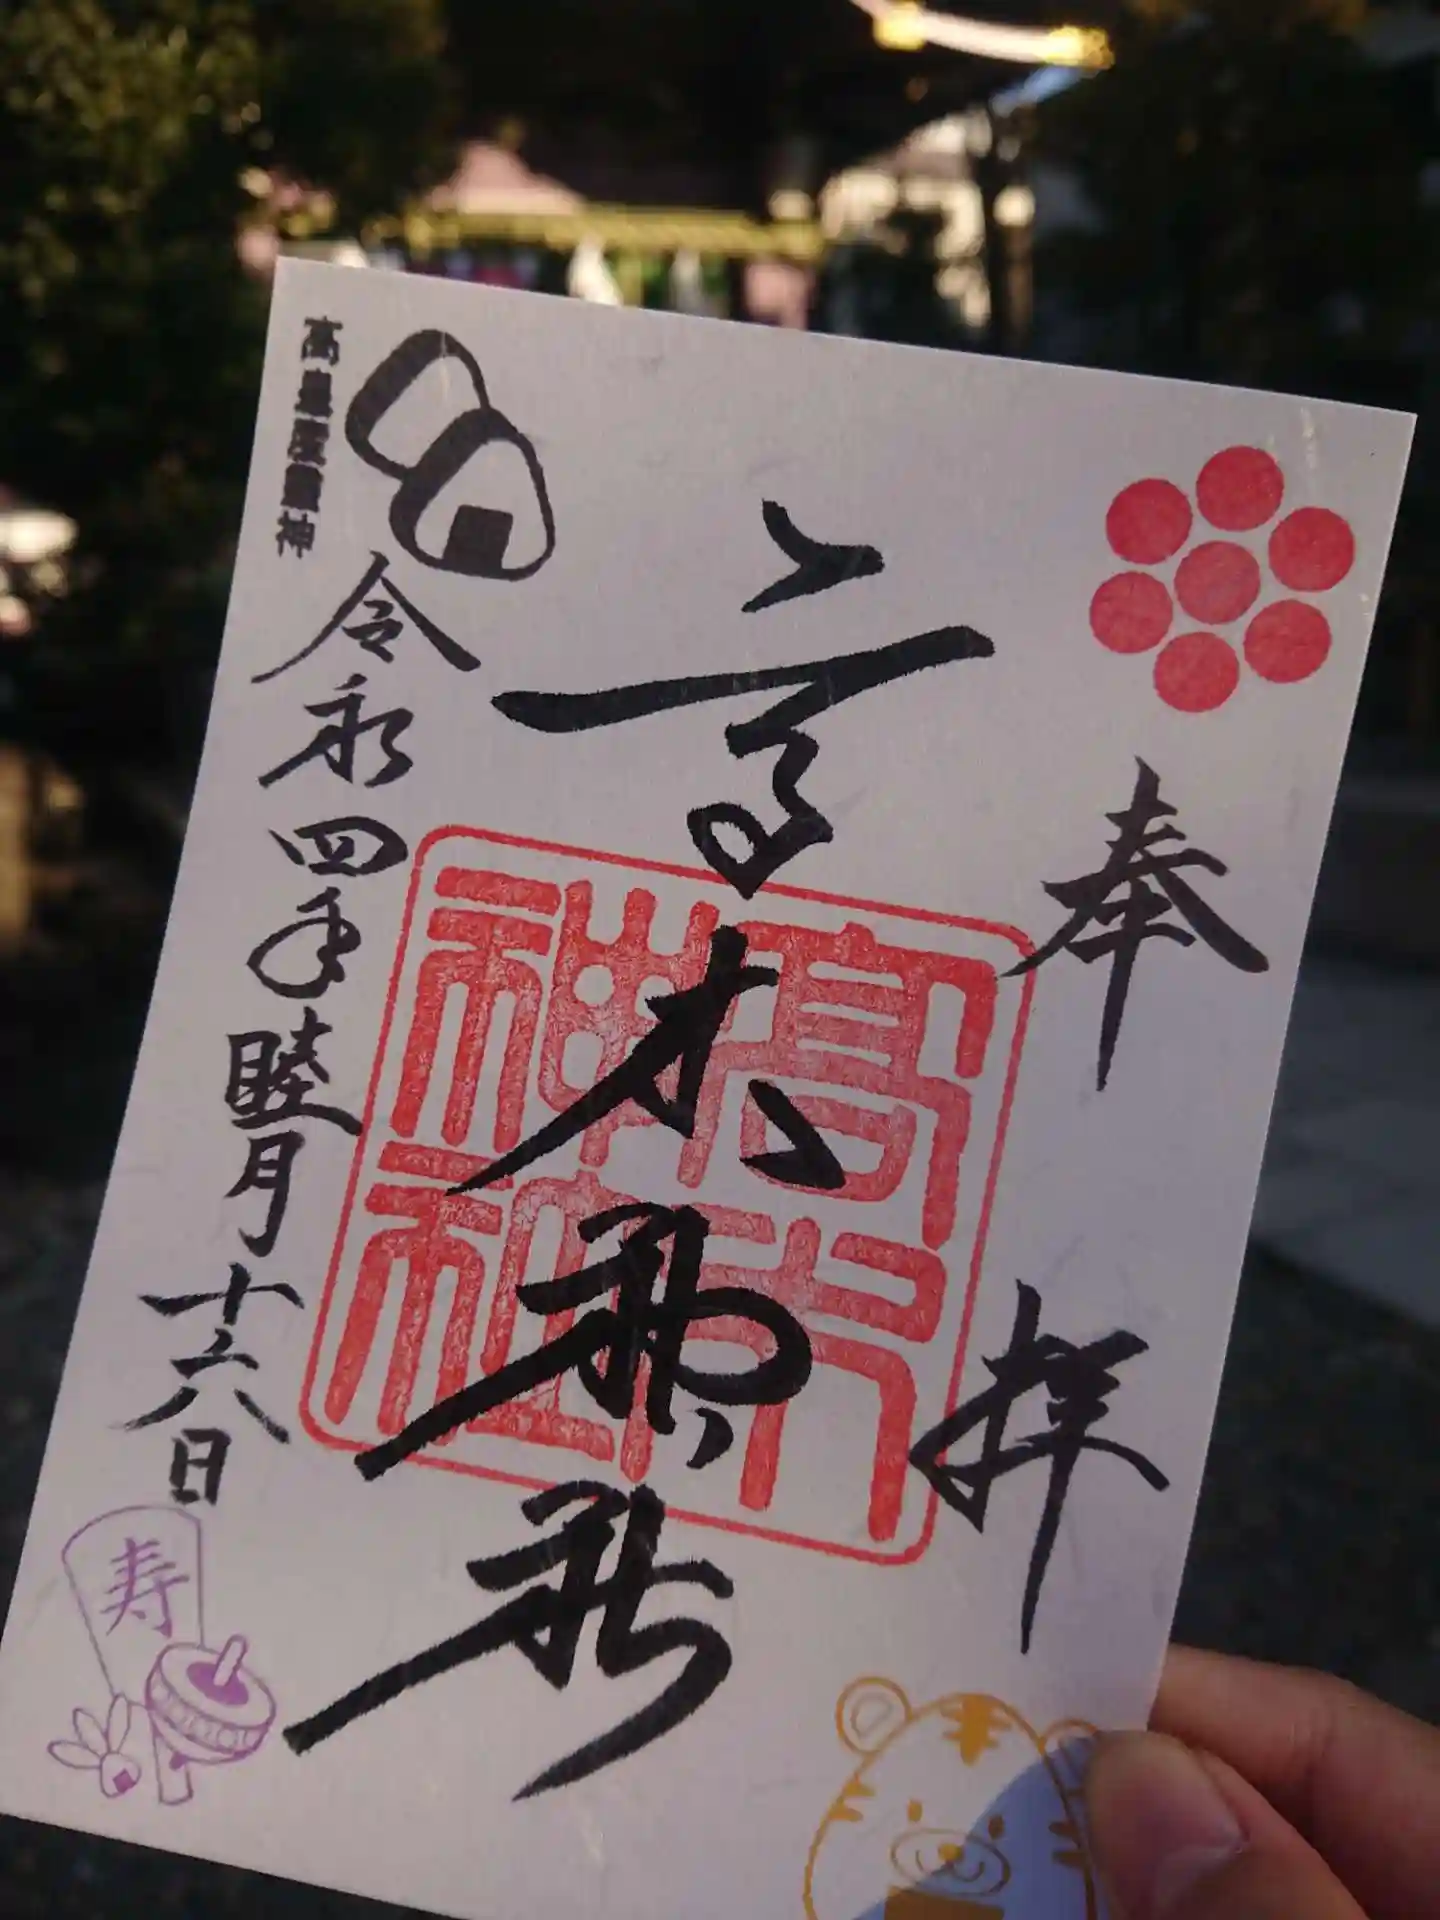 奉拝
高木神社
高木神社
令和四年睦月十六日
高皇産靈神
寿